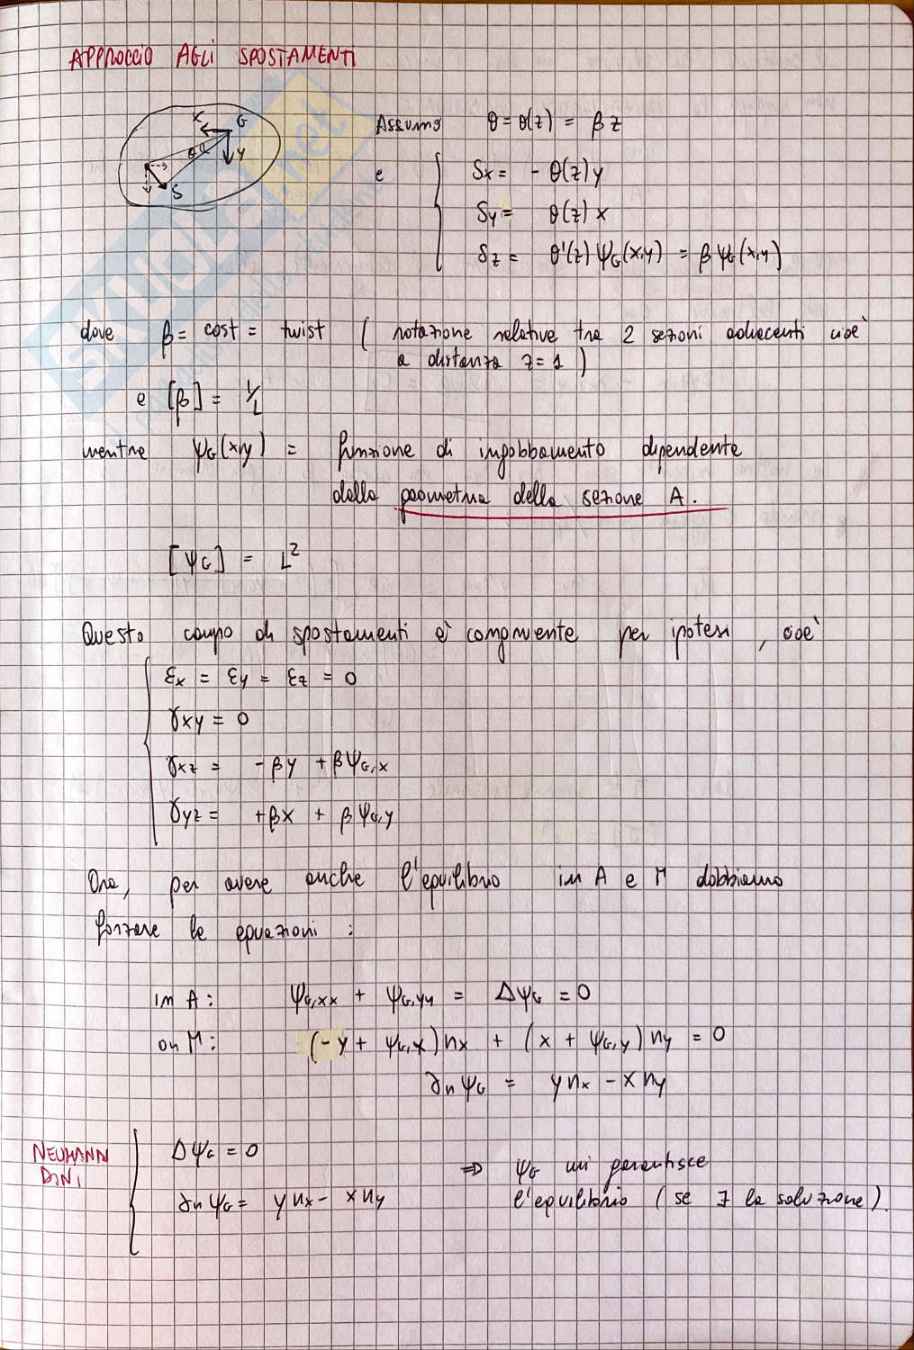 APPROCCIO AGLI SPOSTAMENTI
x G
θ y
S
Assumo θ = θ(z) = β z
e Sx = - θ(z) y
Sy = θ(z) x
Sz = θ'(z) ψG(x,y) = β ψG(x,y)
dove β = cost = twist ( rotazione relativa tra 2 sezioni adiacenti cioè
a distanza z = 1 )
e [β] = 1/L
mentre ψG(x,y) = funzione di ingobbamento dipendente
dalla geometria della sezione A.
[ψG] = L²
Questo campo di spostamenti è congruente per ipotesi, cioè
εx = εy = εz = 0
γxy = 0
γxz = - βy + βψG,x
γyz = + βx + βψG,y
Ora, per avere anche l'equilibrio in A e M dobbiamo
forzare le equazioni :
in A : ψG,xx + ψG,yy = ΔψG = 0
on M : (- y + ψG,x) nx + (x + ψG,y) ny = 0
∂n ψG = y nx - x ny
NEUMANN
DINI
ΔψG = 0
∂n ψG = y nx - x ny
⇒ ψG mi garantisce
l'equilibrio (se ∃ la soluzione).
SKUOLA.net